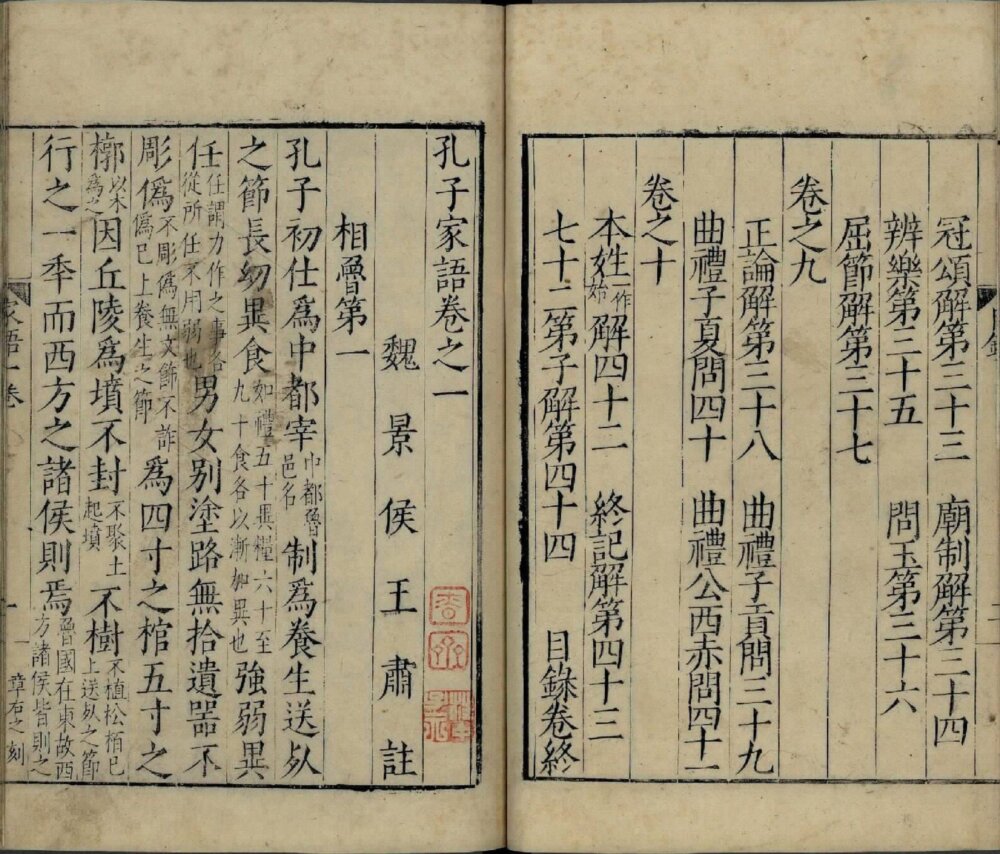 冠頌解第三十三　廟制解第三十四
辨樂第三十五　問玉第三十六
屈節解第三十七
卷之九
正論解第三十八　曲禮子貢問三十九
曲禮子夏問四十　曲禮公西赤問四十一
卷之十
本姓一作姓解四十二　終記解第四十三
七十二第子解第四十四　目錄卷終
孔子家語卷之一
魏景侯王肅註
相魯第一
孔子初仕爲中都宰中都魯邑名制爲養生送死
之節長幼異食如禮五十異糧六十至九十食各以漸加異也強弱異
任任謂力作之事各從所任不用弱也男女別塗路無拾遺器不
彫僞不彫僞無文飾不詐僞已上養生之節爲四寸之棺五寸之
槨以木爲之因丘陵爲墳不封不聚土起墳不樹不植松栢已上送死之節
行之一年而西方之諸侯則焉魯國在東故西方諸侯皆則之
家語一卷
一
章右之刻